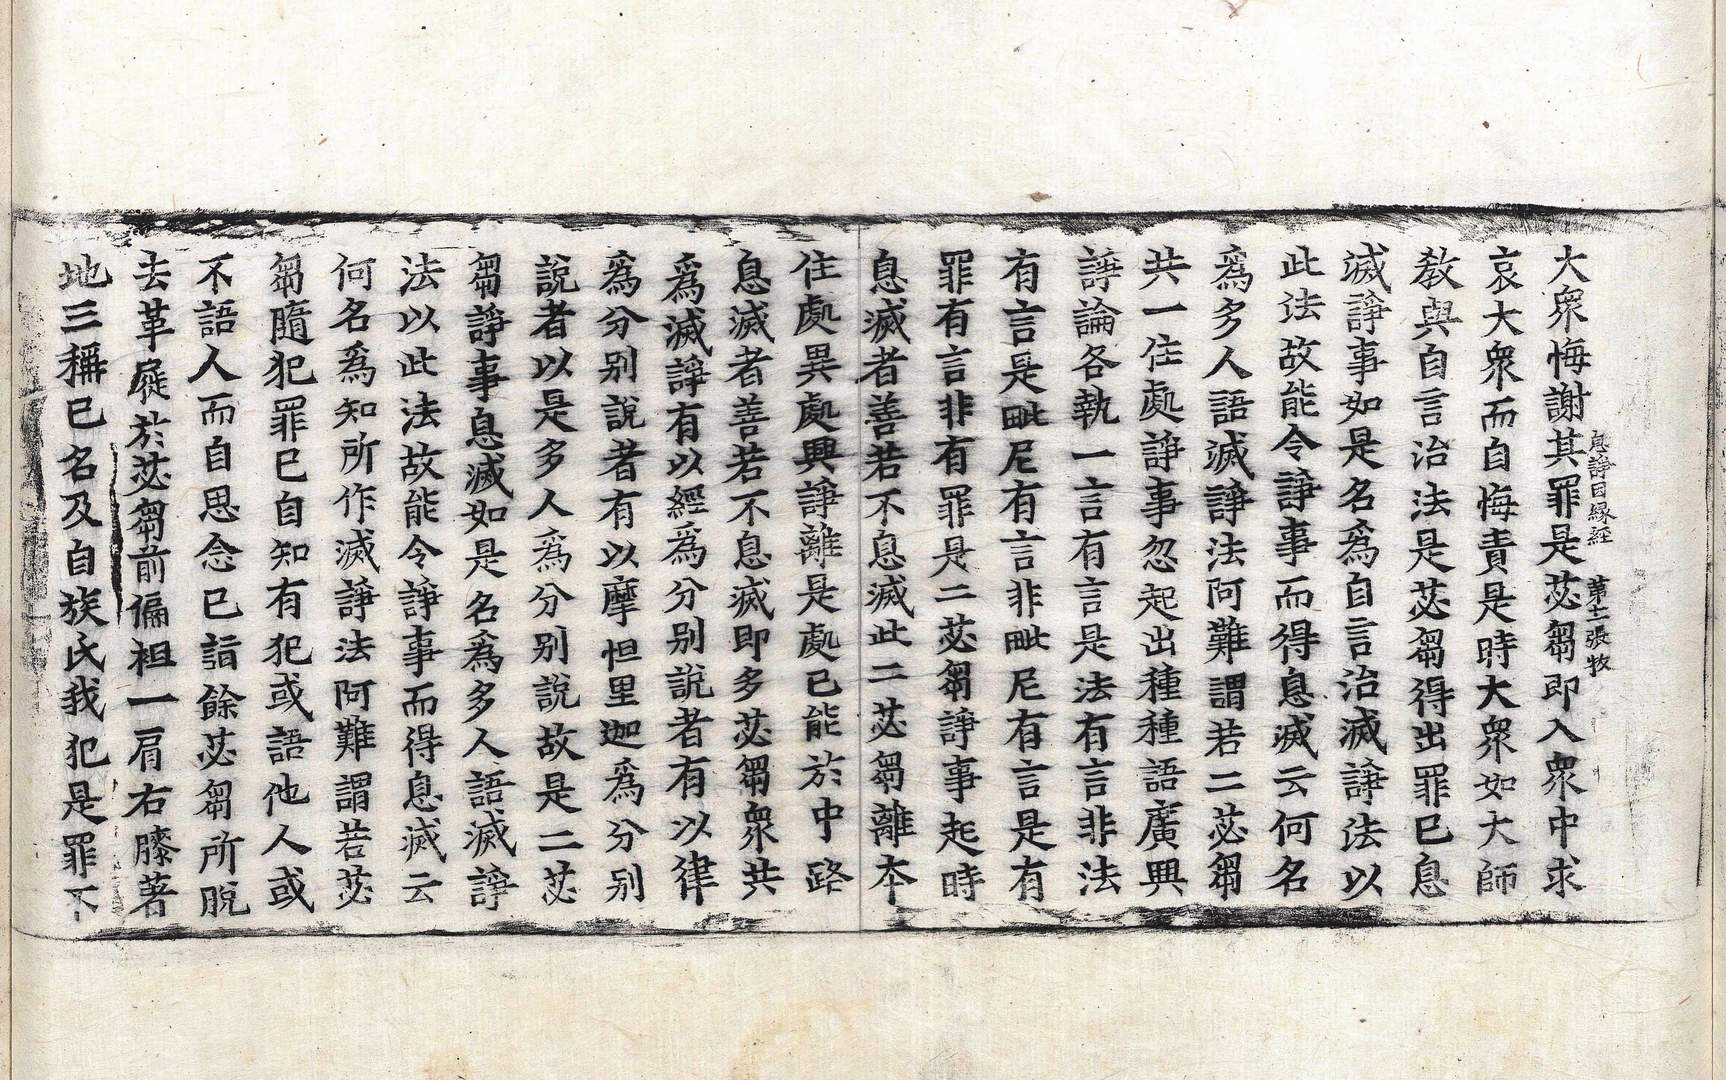 大衆悔謝其罪是苾芻即入衆中求
息諍因縁經　第十二張牧
哀大衆而自悔責是時大衆如大師
教與自言治法是苾芻得出罪已息
滅諍事如是名爲自言治滅諍法以
此法故能令諍事而得息滅云何名
爲多人語滅諍法阿難謂若二苾芻
共一住處諍事忽起出種種語廣興
諍論各執一言有言是法有言非法
有言是毗尼有言非毗尼有言是有
罪有言非有罪是二苾芻諍事起時
息滅者善若不息滅此二苾芻離本
住處異處興諍離是處已能於中路
息滅者善若不息滅即多苾芻衆共
爲滅諍有以經爲分别説者有以律
爲分别説者有以摩怛里迦爲分别
説者以是多人爲分别説故是二苾
芻諍事息滅如是名爲多人語滅諍
法以此法故能令諍事而得息滅云
何名爲知所作滅諍法阿難謂若苾
芻隨犯罪已自知有犯或語他人或
不語人而自思念已詣餘苾芻所脱
去革屣於苾芻前偏袒一肩右膝著
地三稱已名及自族氏我犯是罪不